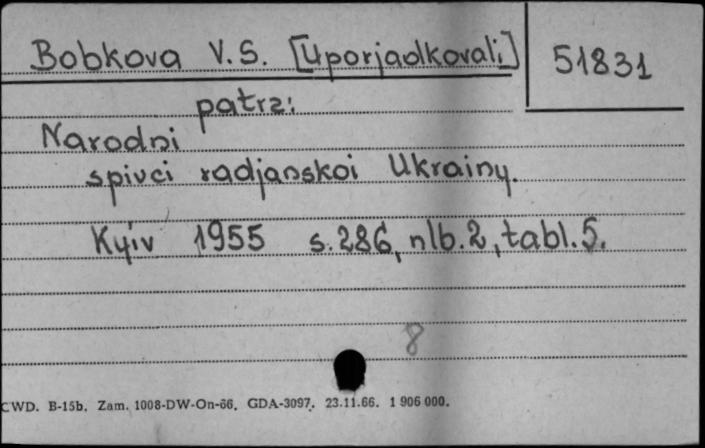 Bobkova V.S. [Uporjadkovali]
51831
patrz:
Narodni
spivci radjanskoi Ukrainy.
Kyiv 1955 s.286, nlb.2, tabl.5.
8
CWD. B-15b. Zam. 1008-DW-On-66. GDA-3097. 23.11.66. 1 906 000.